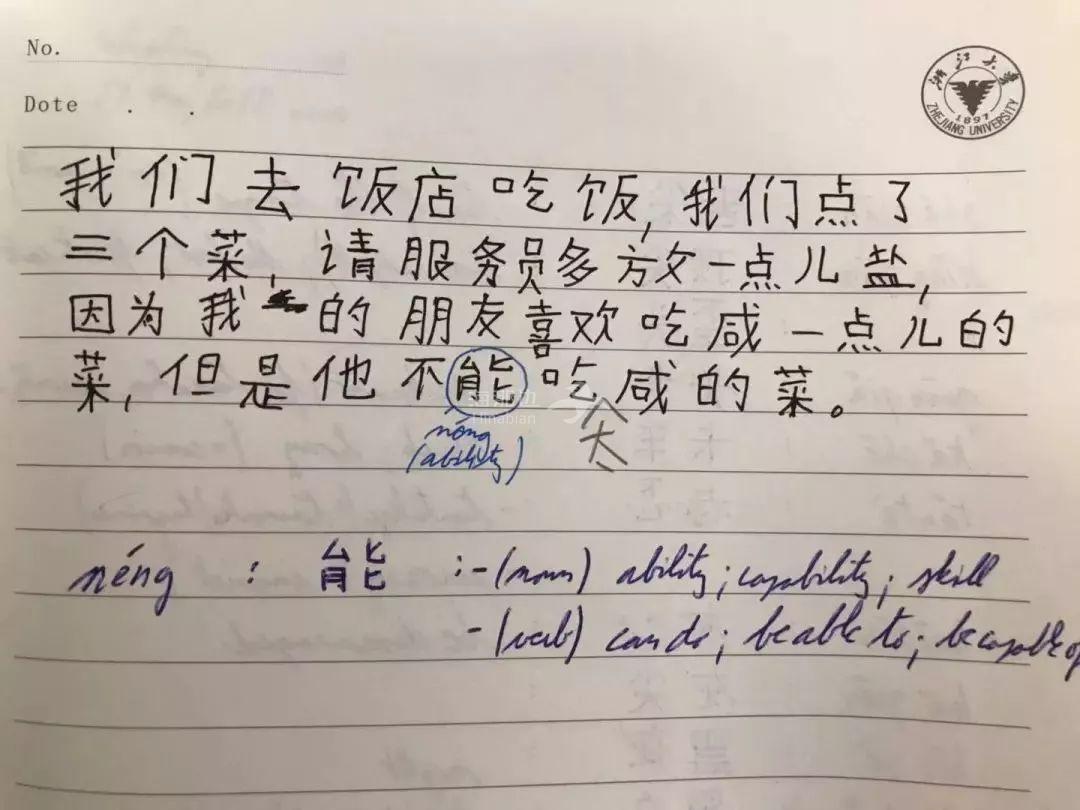 No.
Dote . .
浙江大学
1897
ZHEJIANG UNIVERSITY
我们去饭店吃饭,我们点了
三个菜,请服务员多放一点儿盐,
因为我的朋友喜欢吃咸一点儿的
菜,但是他不能吃咸的菜。
太
néng
(ability)
Hinabian
néng : 能 :-(noun) ability; capability; skill
-(verb) can do; be able to; be capable of